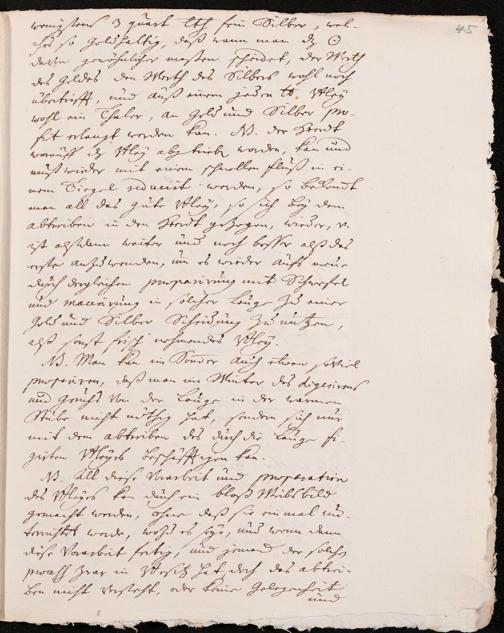 45
wenigstens 3 quart lth fein Silber, wel-
ches so Goldhaltig, daß wann man dz ☉
davon gewöhnlicher maßen scheidet, der Werth
des Goldes den Werth des Silbers wohl noch
übertrifft, und auß einem jeden lb. Bley
wohl ein Thaler, an Gold und Silber pro-
fit erlangt werden kan. NB. der Heerdt
worauff dz Bley abgetrieben worden, kan und
muß wieder mit einem schnellen fluß in ei-
nem Tiegel reducirt werden, so bekomt
man all das gute Bley, so sich bey dem
abtreiben in den Heerdt gezogen, wieder, v.
ist alßdann weiter und noch besser alß das
erste anzuwenden, um es wieder auffs neue
durch dergleichen praeparirung mit Schwefel
und macerirung in solcher Lauge zu einer
Gold und Silber Scheidung zu nutzen,
alß sonst frisch nehmendes Bley.
NB. Man kan im Sommer auch etwan so viel
praepariren, daß man im Winter des digerirens
und Geruchs von der Lauge in der warmen
Stube nicht nöthig hat, sondern sich nur
mit dem abtreiben des durch die Lauge fi-
girten Bleyes beschäfftigen kan.
NB. All diese Vorarbeit und praeparation
des Bleyes kan durch ein bloß Weibsbild
gemacht werden, ohne daß sie einmal un-
terrichtet werde, wozu es seye, und wenn dann
diese Vorarbeit fertig, und jemand der solchs
zwar in Besitz hat, doch das abtrei-
ben nicht versteht, oder keine Gelegenheit
und